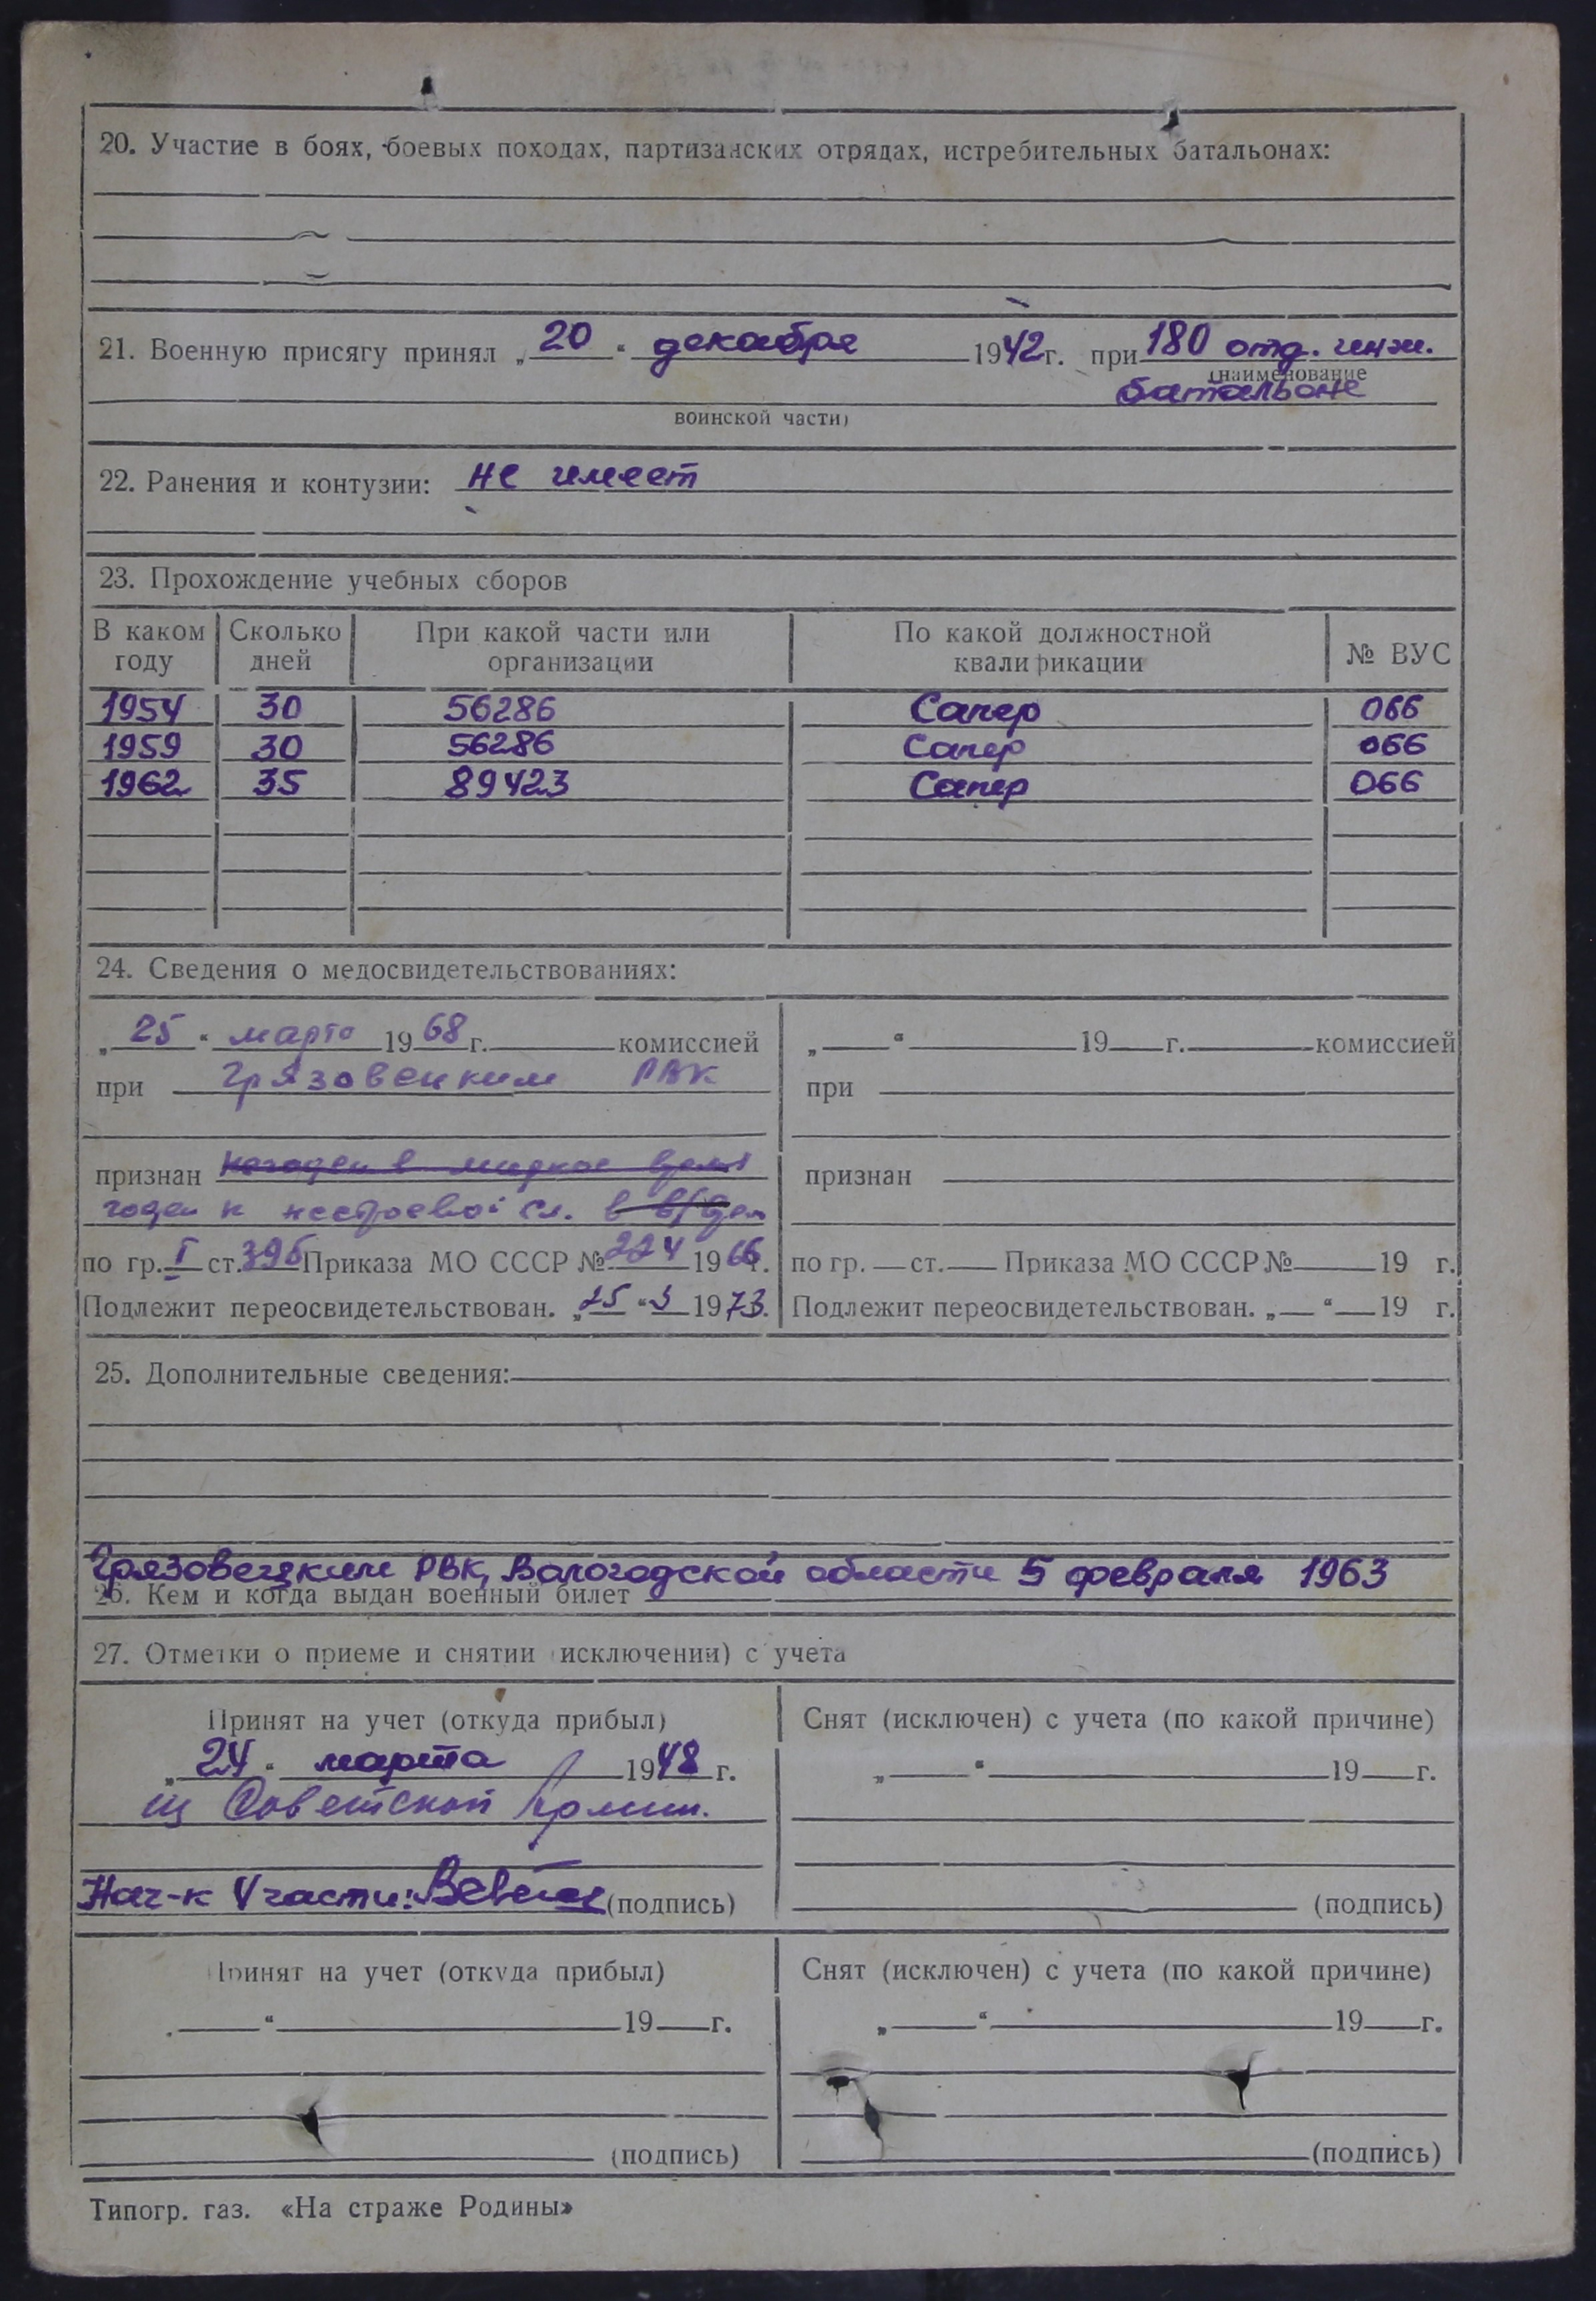 20. Участие в боях, боевых походах, партизанских отрядах, истребительных батальонах:
21. Военную присягу принял „20“ декабря 1942г. при 180 отд. инж.
(наименование
батальоне
воинской части)
22. Ранения и контузии: не имеет
23. Прохождение учебных сборов
В каком году Сколько дней При какой части или организации По какой должностной квалификации № ВУС
1954 30 56286 Сапер 066
1959 30 56286 Сапер 066
1962 35 89423 Сапер 066
24. Сведения о медосвидетельствованиях:
„25“ марта 1968г. комиссией
при Грязовецким РВК
признан негоден в мирное время
годен к нестроевой сл. в в/врем
по гр. I ст. 39б Приказа МО СССР № 224 1966г.
Подлежит переосвидетельствован. „25“ 3 1973.
„ “ 19 г. комиссией
при
признан
по гр. ст. Приказа МО СССР № 19 г.
Подлежит переосвидетельствован. „ “ 19 г.
25. Дополнительные сведения:
Грязовецким РВК, Вологодской области 5 февраля 1963
26. Кем и когда выдан военный билет
27. Отметки о приеме и снятии (исключении) с учета
Принят на учет (откуда прибыл)
„24“ марта 1948 г.
из Советской Армии.
Нач-к 4 части: (подпись)
Снят (исключен) с учета (по какой причине)
„ “ 19 г.
(подпись)
Принят на учет (откуда прибыл)
„ “ 19 г.
(подпись)
Снят (исключен) с учета (по какой причине)
„ “ 19 г.
(подпись)
Типогр. газ. «На страже Родины»